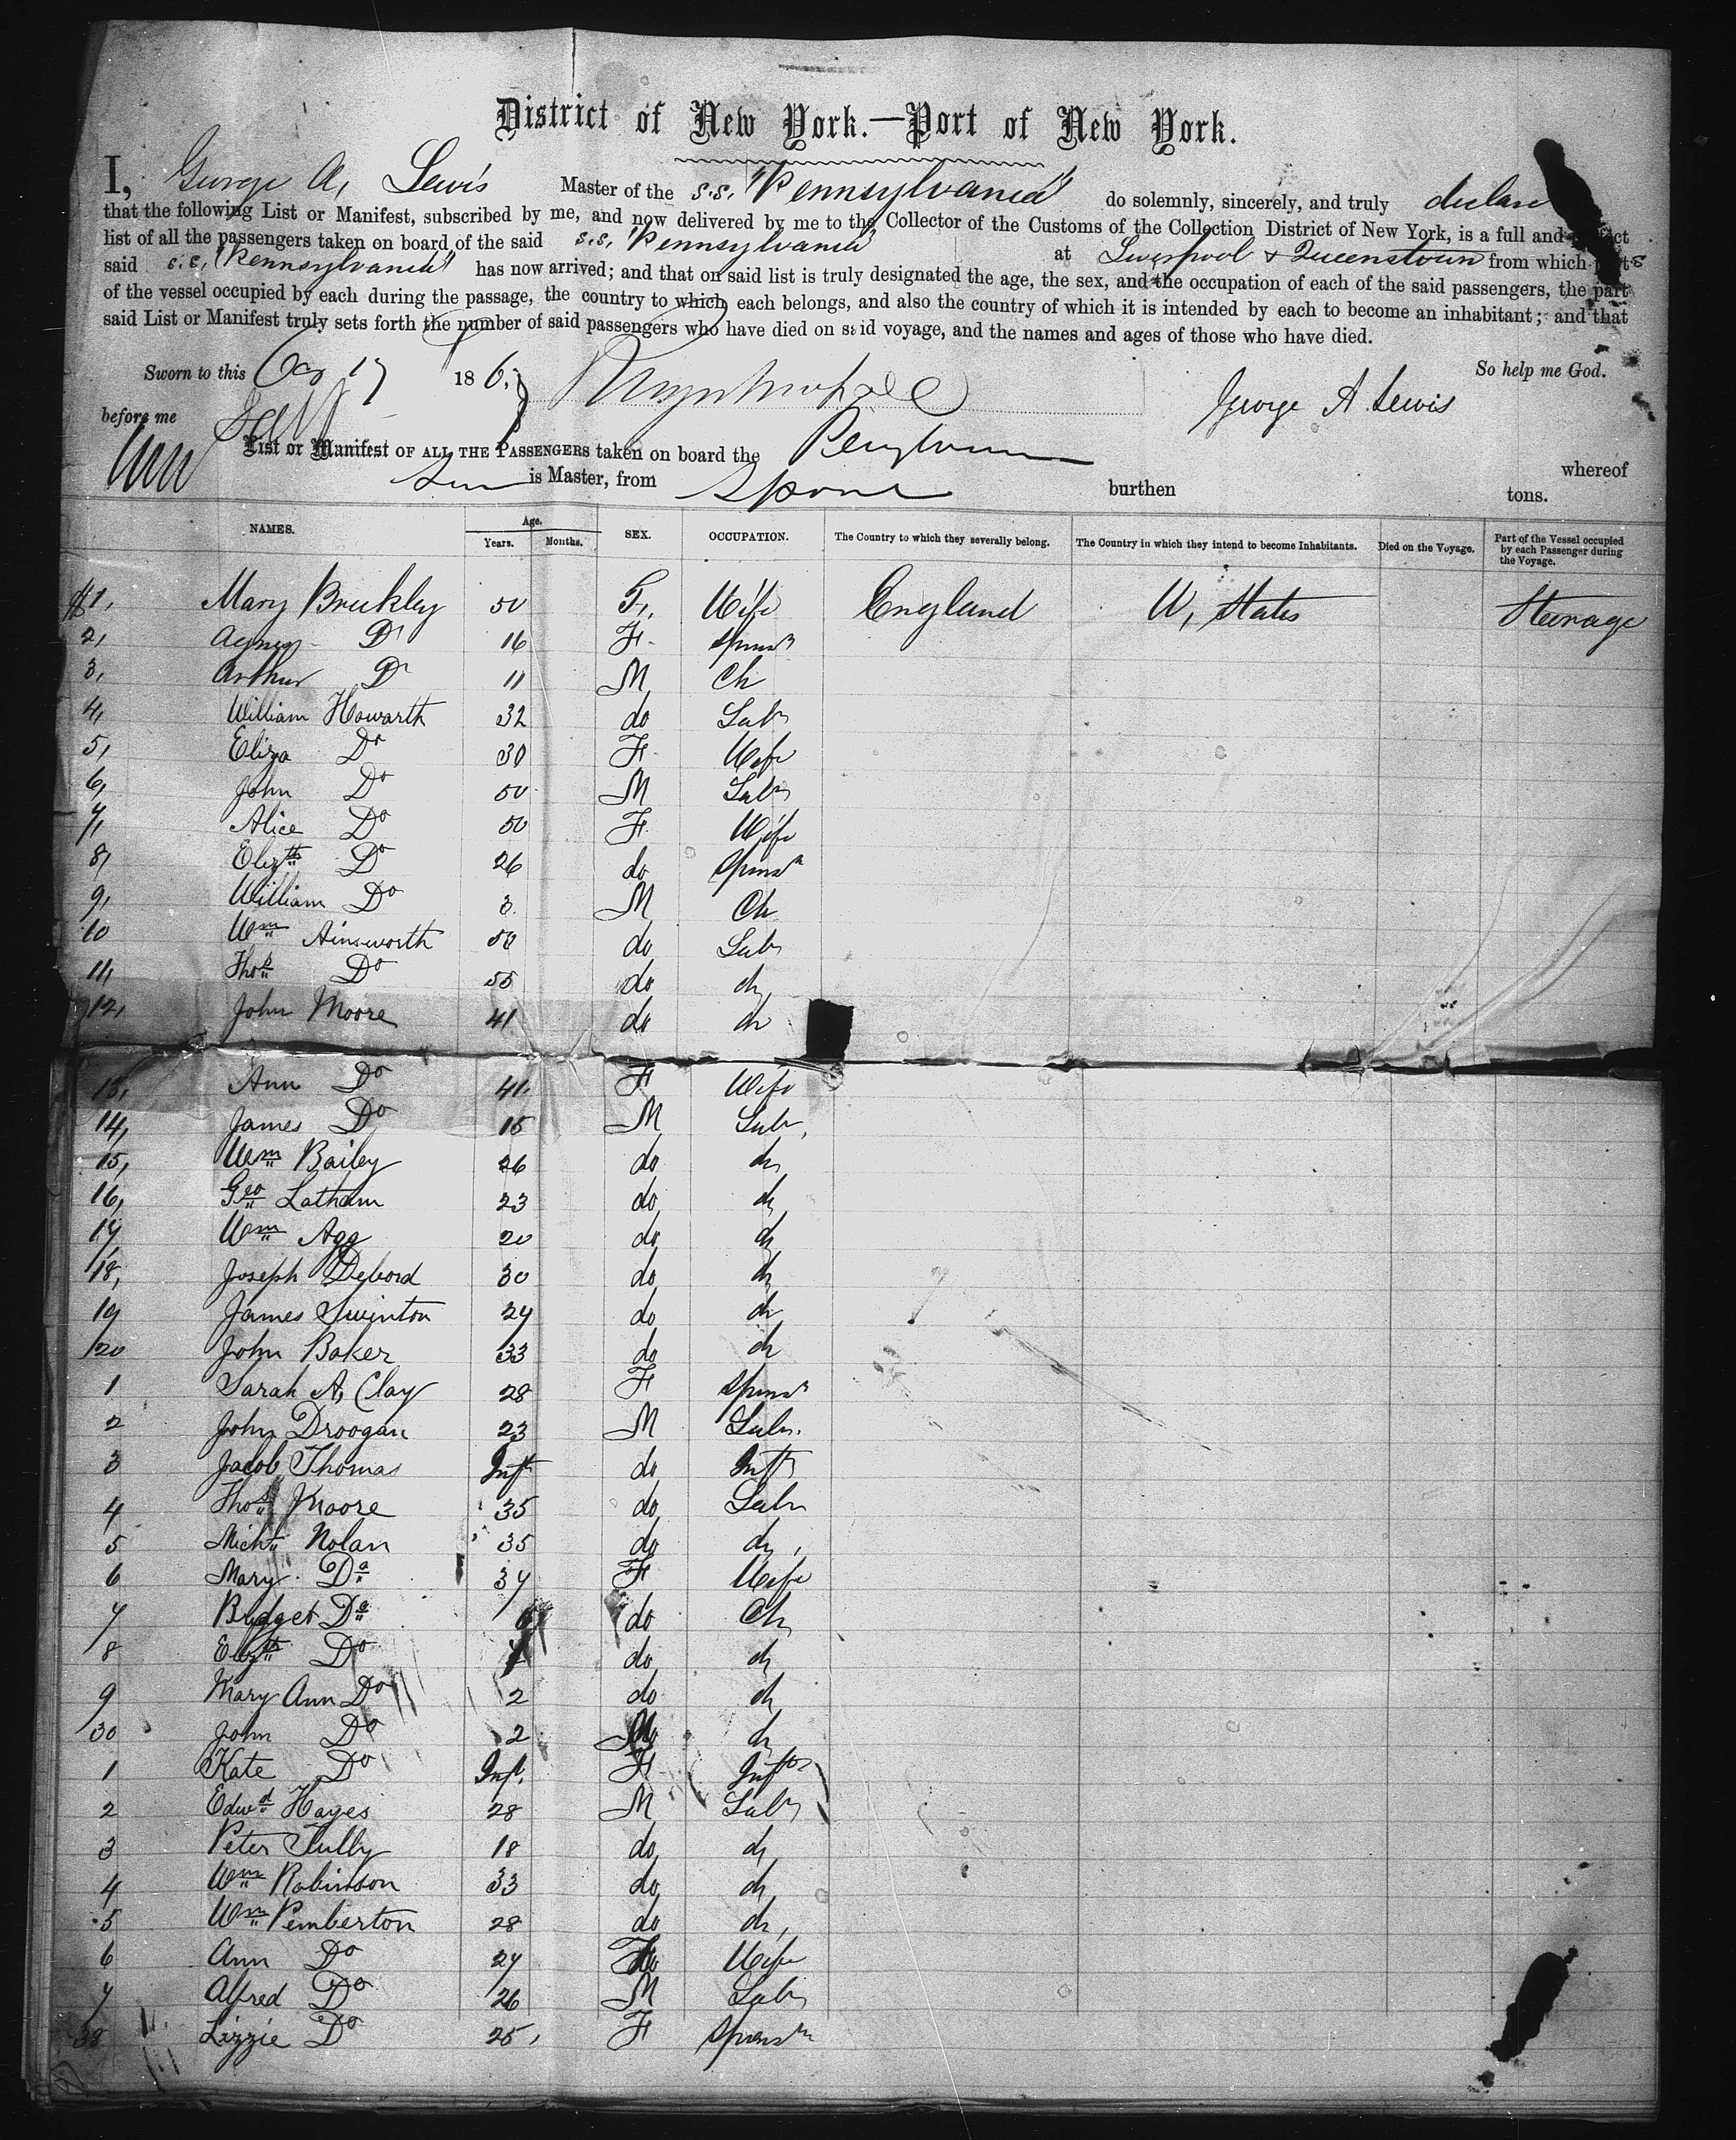 District of New York.—Port of New York.
I, George A. Lewis Master of the S.S. "Pennsylvania" do solemnly, sincerely, and truly declare
that the following List or Manifest, subscribed by me, and now delivered by me to the Collector of the Customs of the Collection District of New York, is a full and
list of all the passengers taken on board of the said S.S. "Pennsylvania" at Liverpool & Queenstown from which
said S.S. "Pennsylvania" has now arrived; and that on said list is truly designated the age, the sex, and the occupation of each of the said passengers, the part
of the vessel occupied by each during the passage, the country to which each belongs, and also the country of which it is intended by each to become an inhabitant; and that
said List or Manifest truly sets forth the number of said passengers who have died on said voyage, and the names and ages of those who have died.
Sworn to this 17 186 So help me God.
before me George A. Lewis
List or Manifest OF ALL THE PASSENGERS taken on board the whereof
is Master, from burthen tons.
NAMES. Age. Years. Months. SEX. OCCUPATION. The Country to which they severally belong. The Country in which they intend to become Inhabitants. Died on the Voyage. Part of the Vessel occupied by each Passenger during the Voyage.
1, Mary Bruckley 50 F, Wife England U, States Steerage
2, Agnes Do 16 F. Spinsr
3, Arthur Do 11 M Ch
4, William Howarth 32 do Labr
5, Eliza Do 30 F. Wife
6, John Do 50 M Labr
7, Alice Do 50 F. Wife
8, Elizth Do 26 do Spinsr
9, William Do 3 M Ch
10 Wm Ainsworth 50 do Labr
11, Thos Do 55 do do
12, John Moore 41 do do
13, Ann Do 41 F Wife
14, James Do 15 M Labr
15, Wm Bailey 26 do do
16, Geo Latham 23 do do
17, Wm Agg 20 do do
18, Joseph Debord 30 do do
19 James Swinton 24 do do
20 John Baker 33 do do
1 Sarah A, Clay 28 F Spinsr
2 John Droogan 23 M Labr.
3 Jacob Thomas Inft do Inft
4 Thos Moore 35 do Labr
5 Michl Nolan 35 do do
6 Mary Do 34 F Wife
7 Bridget Do do Ch
8 Elizth Do do do
9 Mary Ann Do 2 do do
30 John Do 2 M do
1 Kate Do Inft. F Inft
2 Edwd Hayes 28 M Labr
3 Peter Tully 18 do do
4 Wm Robinson 33 do do
5 Wm Pemberton 28 do do
6 Ann Do 27 F Wife
7 Alfred Do 26 M Labr
38 Lizzie Do 25, F Spinsr